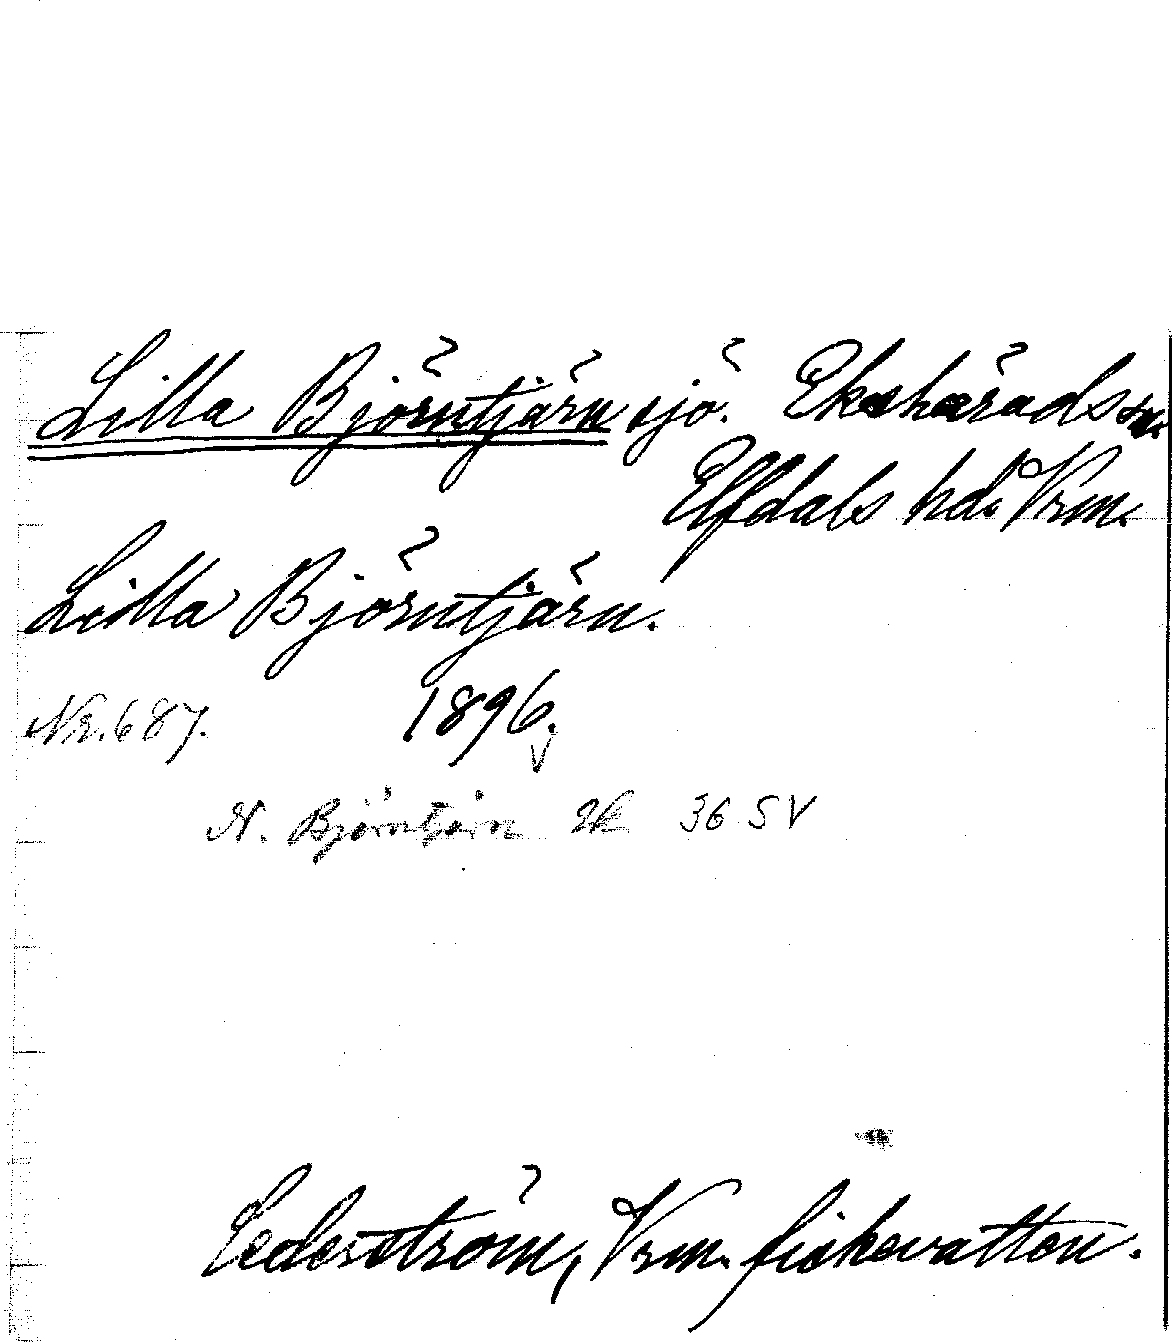 Lilla Björntjärn sjö. Ekshärads sn.
Elfdals hd. Vrm.
Lilla Björntjärn.
Nr. 687. 1896.
N. Björntjärn 2k 36 SV
Cederström, Vrm. fiskevatten.